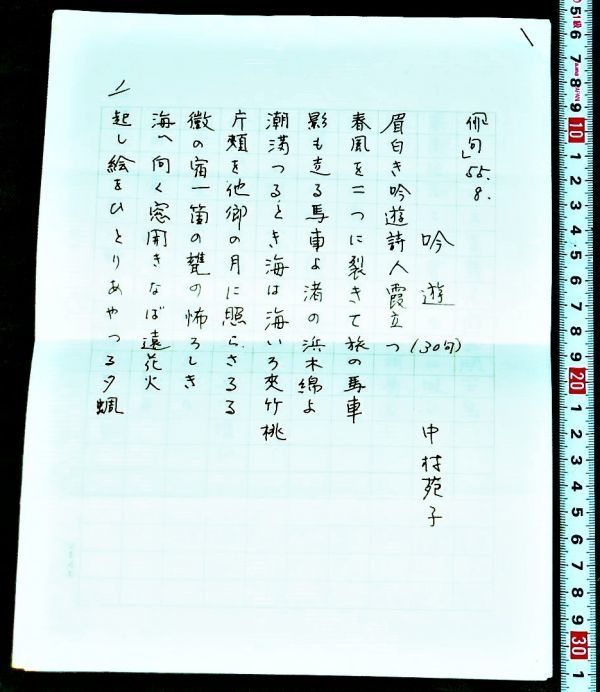 「俳句」55.8.
吟遊(30句)
中村苑子
眉白き吟遊詩人霞立つ
春風を二つに裂きて旅の馬車
影も走る馬車よ渚の浜木綿よ
潮満つるとき海は海いろ夾竹桃
片頬を他郷の月に照らさるる
黴の宿一箇の甕の怖ろしき
海へ向く窓開きなば遠花火
起し絵をひとりあやつる夕蜩
5 6 7 8 9 10 1 2 3 4 5 6 7 8 9 20 1 2 3 4 5 6 7 8 9 30 1